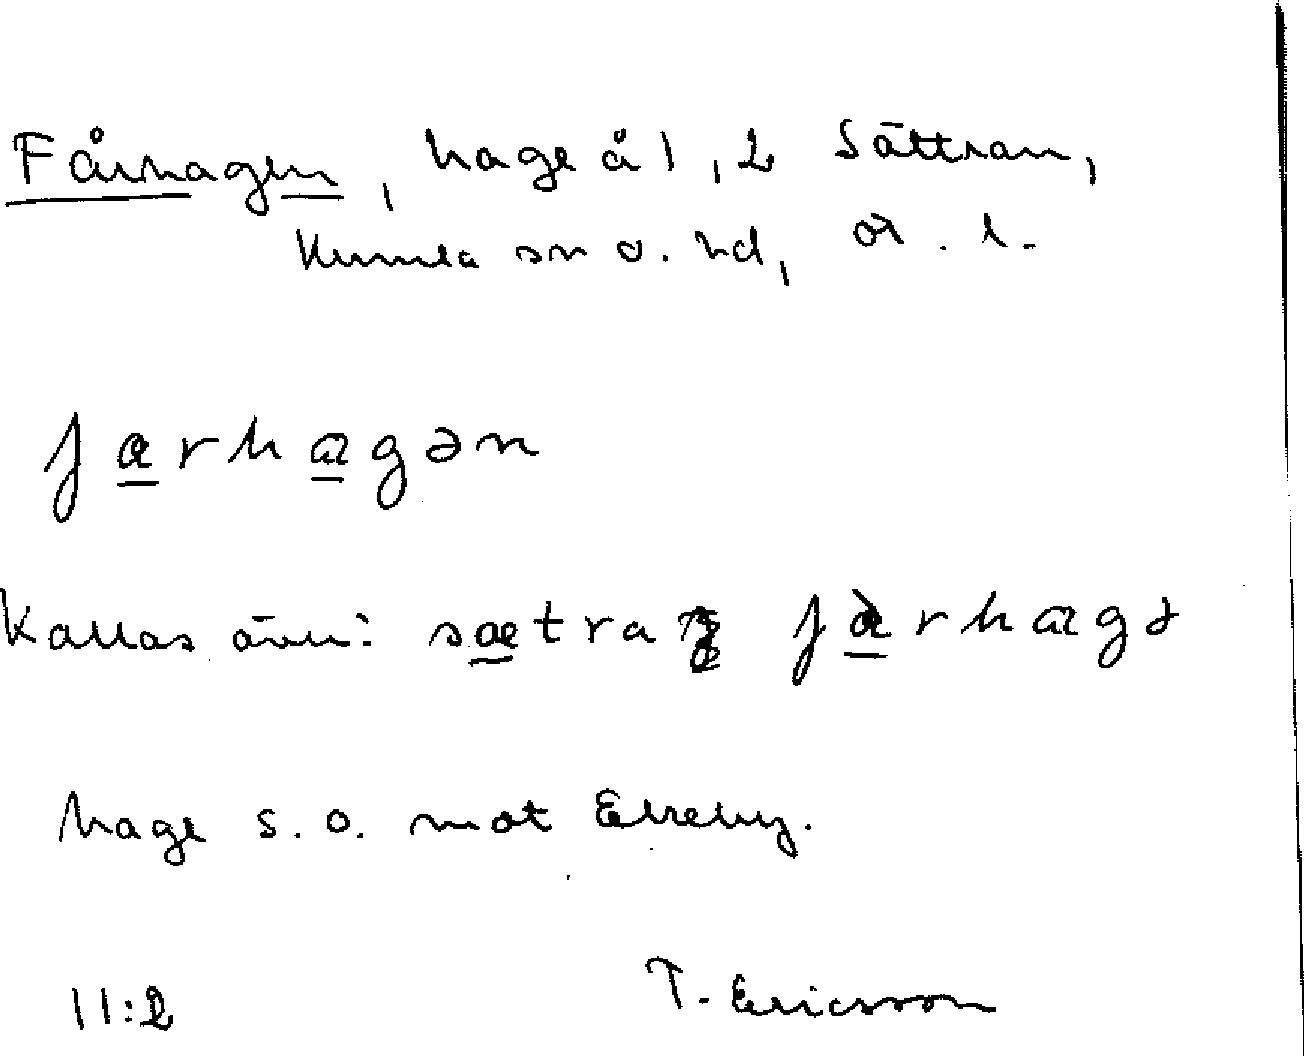 Fårhagen, hage å 1, 2 Sättran,
Kumla sn o. hd, ör. l.
færhagən
Kallas även: sætra færhagə
hage s.o. mot Elreby.
11:2 T. Ericsson